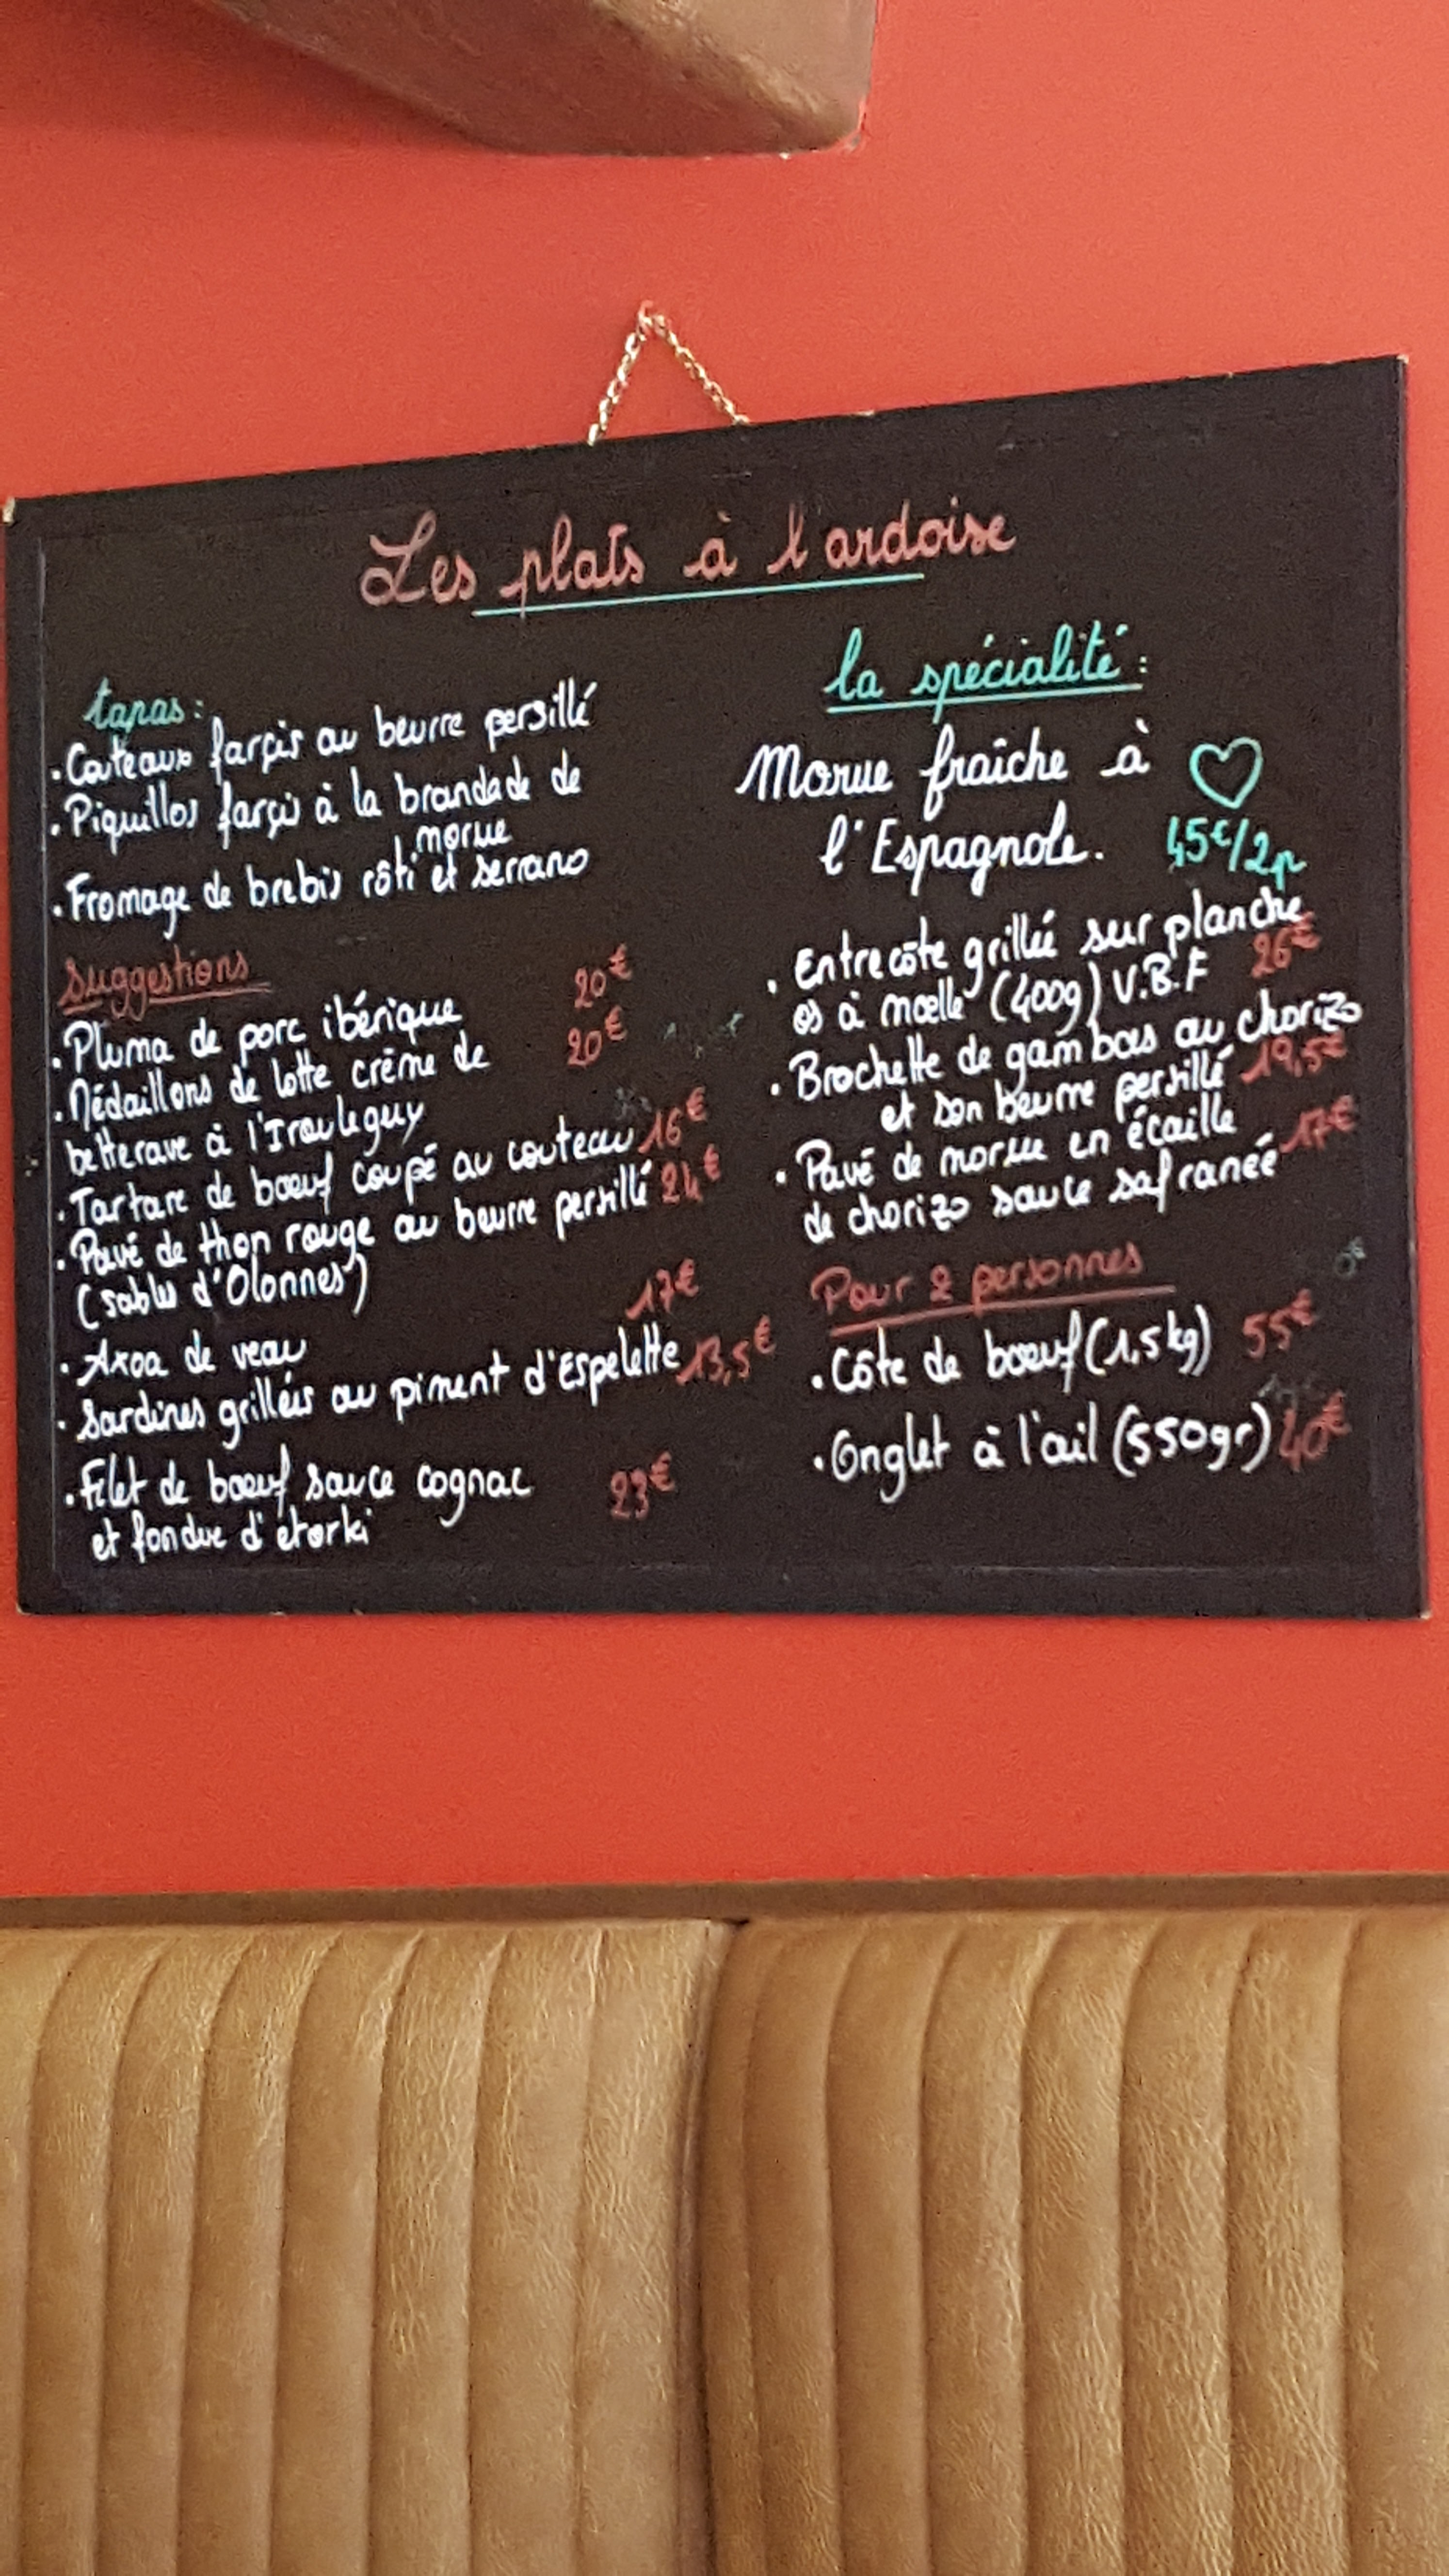 Les plats à l'ardoise
tapas:
. Couteaux farçis au beurre persillé
. Piquillos farçis à la brandade de
morue
. Fromage de brebis rôti et serrano
Suggestions
. Pluma de porc ibérique 20€
. Médaillons de lotte crème de 20€
betterave à l'Irouleguy
. Tartare de boeuf coupé au couteau 16€
. Pavé de thon rouge au beurre persillé 24€
(sables d'Olonnes)
. Axoa de veau 17€
. Sardines grillées au piment d'Espelette 13,5€
. Filet de boeuf sauce cognac 23€
et fondue d'étorki
la spécialité:
Morue fraîche à
l'Espagnole. 45€/2p
. Entrecôte grillée sur planche
os à moelle (400g) V.B.F 26€
. Brochette de gambas au chorizo
et son beurre persillé 19,5€
. Pavé de morue en écaille 17€
de chorizo sauce safranée
Pour 2 personnes
. Côte de boeuf (1,5kg) 55€
. Onglet à l'ail (550gr) 40€